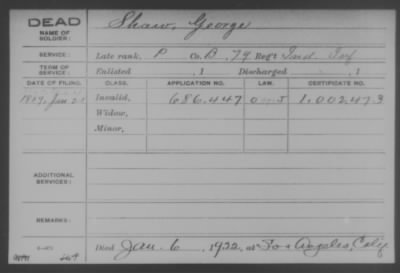 DEAD
NAME OF SOLDIER: Shaw, George
SERVICE: Late rank, P Co. B, 79 Reg't Ind. Inf
TERM OF SERVICE: Enlisted , 1 Discharged , 1
DATE OF FILING. CLASS. APPLICATION NO. LAW. CERTIFICATE NO.
Jan Invalid, 686.447 1.002.473
Widow,
Minor,
ADDITIONAL SERVICES:
REMARKS:
Died Jan. 6, 1922, at Los Angeles, Calif